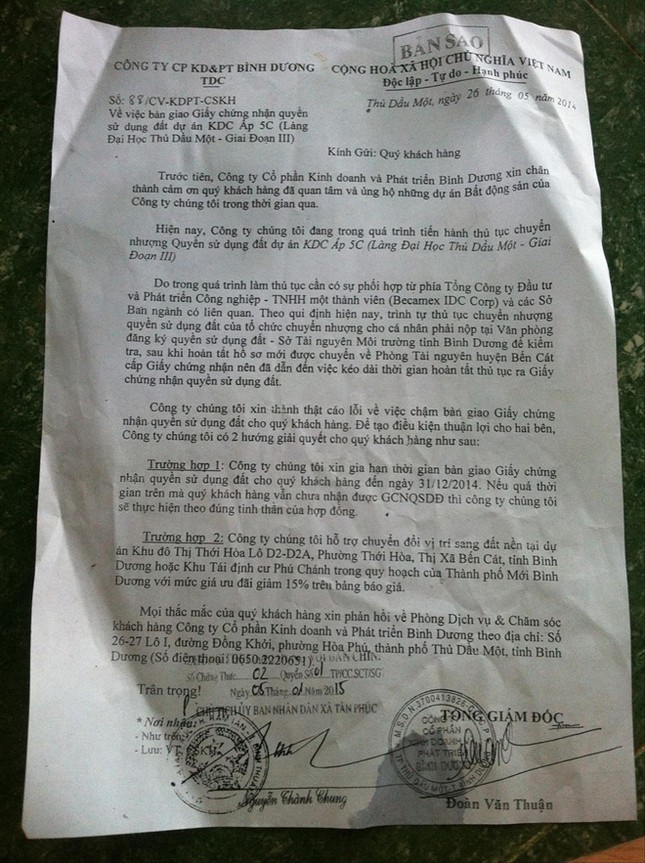 BẢN SAO
CÔNG TY CP KD&PT BÌNH DƯƠNG
TDC
CỘNG HOÀ XÃ HỘI CHỦ NGHĨA VIỆT NAM
Độc lập - Tự do - Hạnh phúc
Số: 88/CV-KDPT-CSKH
Về việc bàn giao Giấy chứng nhận quyền
sử dụng đất dự án KDC Ấp 5C (Làng
Đại Học Thủ Dầu Một - Giai Đoạn III)
Thủ Dầu Một, ngày 26 tháng 05 năm 2014
Kính Gửi: Quý khách hàng
Trước tiên, Công ty Cổ phần Kinh doanh và Phát triển Bình Dương xin chân
thành cảm ơn quý khách hàng đã quan tâm và ủng hộ những dự án Bất động sản của
Công ty chúng tôi trong thời gian qua.
Hiện nay, Công ty chúng tôi đang trong quá trình tiến hành thủ tục chuyển
nhượng Quyền sử dụng đất dự án KDC Ấp 5C (Làng Đại Học Thủ Dầu Một - Giai
Đoạn III)
Do trong quá trình làm thủ tục cần có sự phối hợp từ phía Tổng Công ty Đầu tư
và Phát triển Công nghiệp - TNHH một thành viên (Becamex IDC Corp) và các Sở
Ban ngành có liên quan. Theo qui định hiện nay, trình tự thủ tục chuyển nhượng
quyền sử dụng đất của tổ chức chuyển nhượng cho cá nhân phải nộp tại Văn phòng
đăng ký quyền sử dụng đất - Sở Tài nguyên Môi trường tỉnh Bình Dương để kiểm
tra, sau khi hoàn tất hồ sơ mới được chuyển về Phòng Tài nguyên huyện Bến Cát
cấp Giấy chứng nhận nên đã dẫn đến việc kéo dài thời gian hoàn tất thủ tục ra Giấy
chứng nhận quyền sử dụng đất.
Công ty chúng tôi xin thành thật cáo lỗi về việc chậm bàn giao Giấy chứng
nhận quyền sử dụng đất cho quý khách hàng. Để tạo điều kiện thuận lợi cho hai bên,
Công ty chúng tôi có 2 hướng giải quyết cho quý khách hàng như sau:
Trường hợp 1: Công ty chúng tôi xin gia hạn thời gian bàn giao Giấy chứng
nhận quyền sử dụng đất cho quý khách hàng đến ngày 31/12/2014. Nếu quá thời
gian trên mà quý khách hàng vẫn chưa nhận được GCNQSDĐ thì công ty chúng tôi
sẽ thực hiện theo đúng tinh thần của hợp đồng.
Trường hợp 2: Công ty chúng tôi hỗ trợ chuyển đổi vị trí sang đất nền tại dự
án Khu đô Thị Thới Hòa Lô D2-D2A, Phường Thới Hòa, Thị Xã Bến Cát, tỉnh Bình
Dương hoặc Khu Tái định cư Phú Chánh trong quy hoạch của Thành phố Mới Bình
Dương với mức giá ưu đãi giảm 15% trên bảng báo giá.
Mọi thắc mắc của quý khách hàng xin phản hồi về Phòng Dịch vụ & Chăm sóc
khách hàng Công ty Cổ phần Kinh doanh và Phát triển Bình Dương theo địa chỉ: Số
26-27 Lô I, đường Đồng Khởi, phường Hòa Phú, thành phố Thủ Dầu Một, tỉnh Bình
Dương (Số điện thoại: 0650.2220651)
Số Chứng Thực: 02 Quyển Số 01 TP/CC.SCT/SG
Trân trọng!
Ngày 05 Tháng 01 Năm 2015
CHỦ TỊCH ỦY BAN NHÂN DÂN XÃ TÂN PHÚC
* Nơi nhận:
- Như trên;
- Lưu: VT,
TỔNG GIÁM ĐỐC
M.S.D.N:3700413826
CÔNG TY
CỔ PHẦN
KINH DOANH
PHÁT TRIỂN
BÌNH DƯƠNG
Nguyễn Thành Chung
Đoàn Văn Thuận